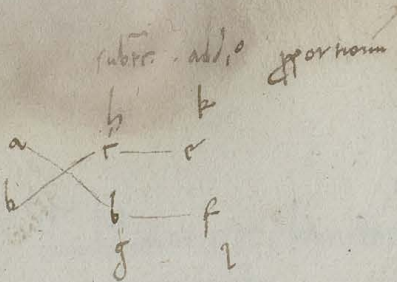 subtrc. addio proportionum
h k
a c e
b b f
g l